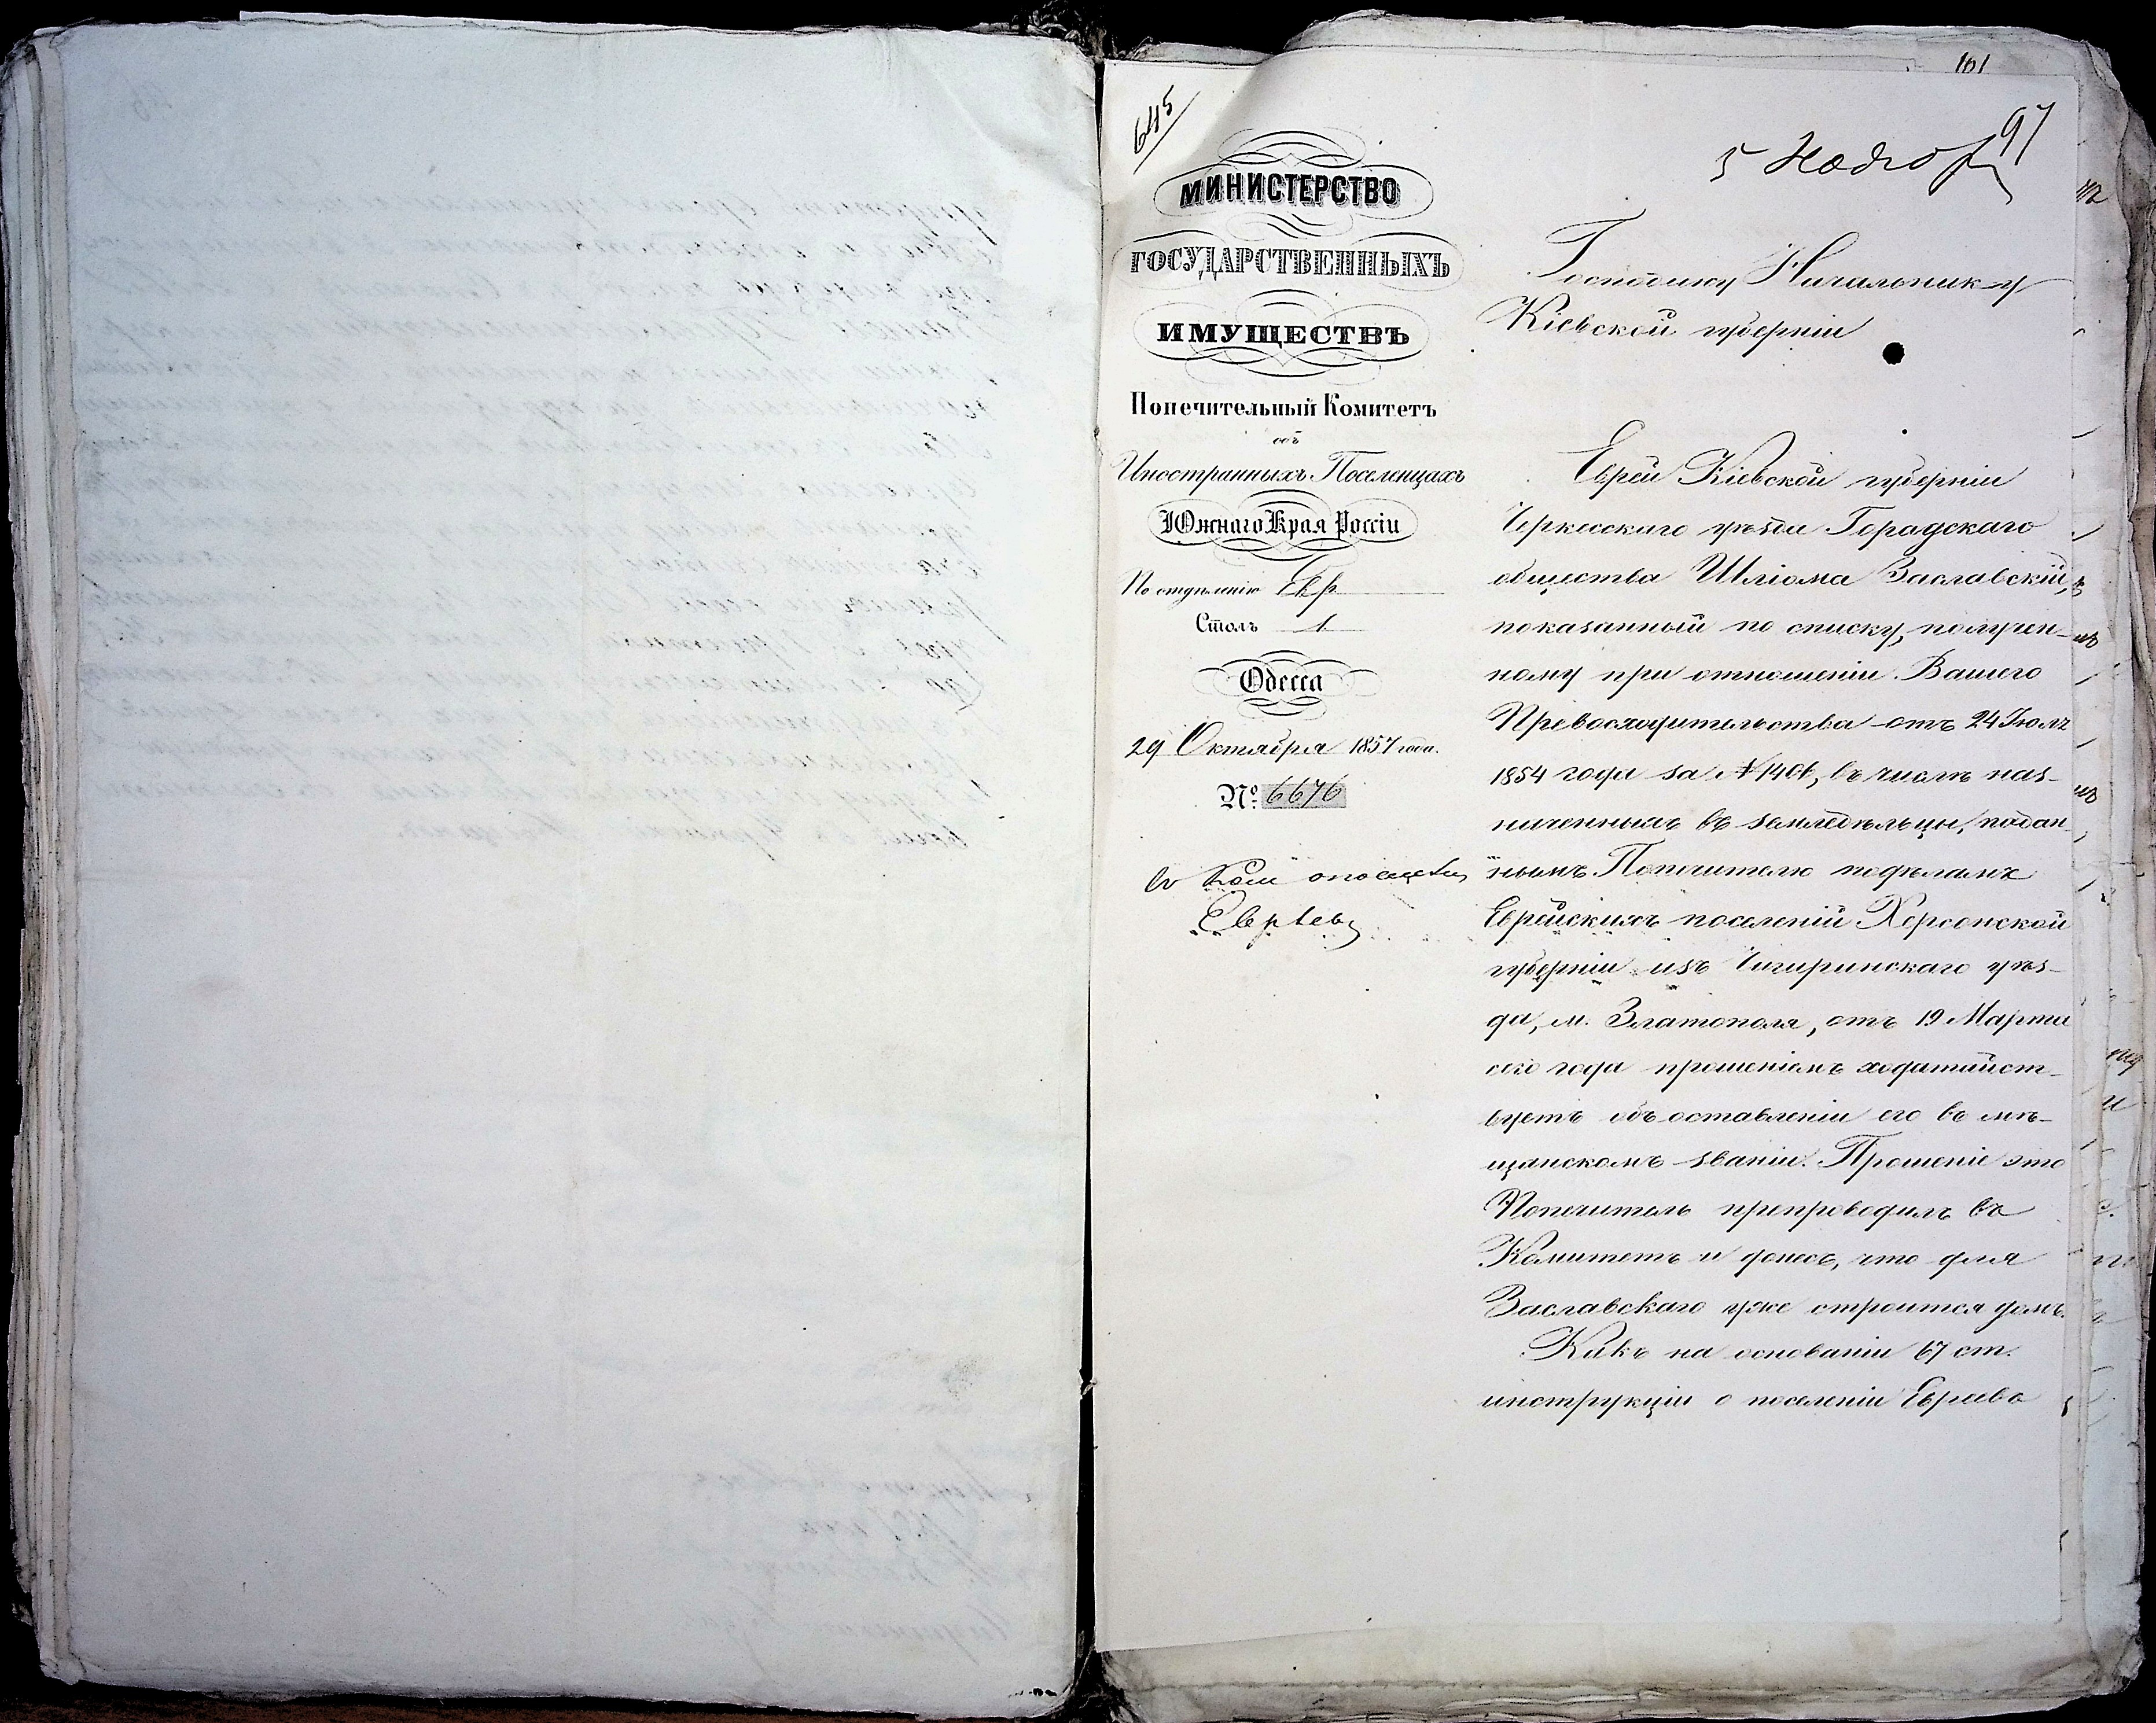 101
97
645
5 Ноября
МИНИСТЕРСТВО
ГОСУДАРСТВЕННЫХЪ
ИМУЩЕСТВЪ
Попечительный Комитетъ
объ
Иностранныхъ Поселенцахъ
Южнаго Края Россіи
По отдѣленію Евр
Столъ 1
Одесса
29 Октября 1857 года.
№ 6676
Евреевъ
Господину Начальнику
Кіевской губерніи
Еврей Кіевской губерніи
Черкасскаго уѣзда Городскаго
общества Шлiома Заславскій,
показанный по списку, получен-
ному при отношеніи Вашего
Превосходительства отъ 24 Іюля
1854 года за № 1406, въ числѣ наз-
наченныхъ въ земледѣльцы, подан-
нымъ Попечителю по дѣламъ
Еврейскихъ поселеній Херсонской
губерніи изъ Чигиринскаго уѣз-
да, м. Златополя, отъ 19 Марта
сего года прошеніемъ ходатайст-
вуетъ объ оставленіи его въ мѣ-
щанскомъ званіи. Прошеніе это
Попечитель препроводилъ въ
Комитетъ и донесъ, что для
Заславскаго уже строится домъ.
Какъ на основаніи 67 ст.
инструкціи о поселеніи Евреевъ